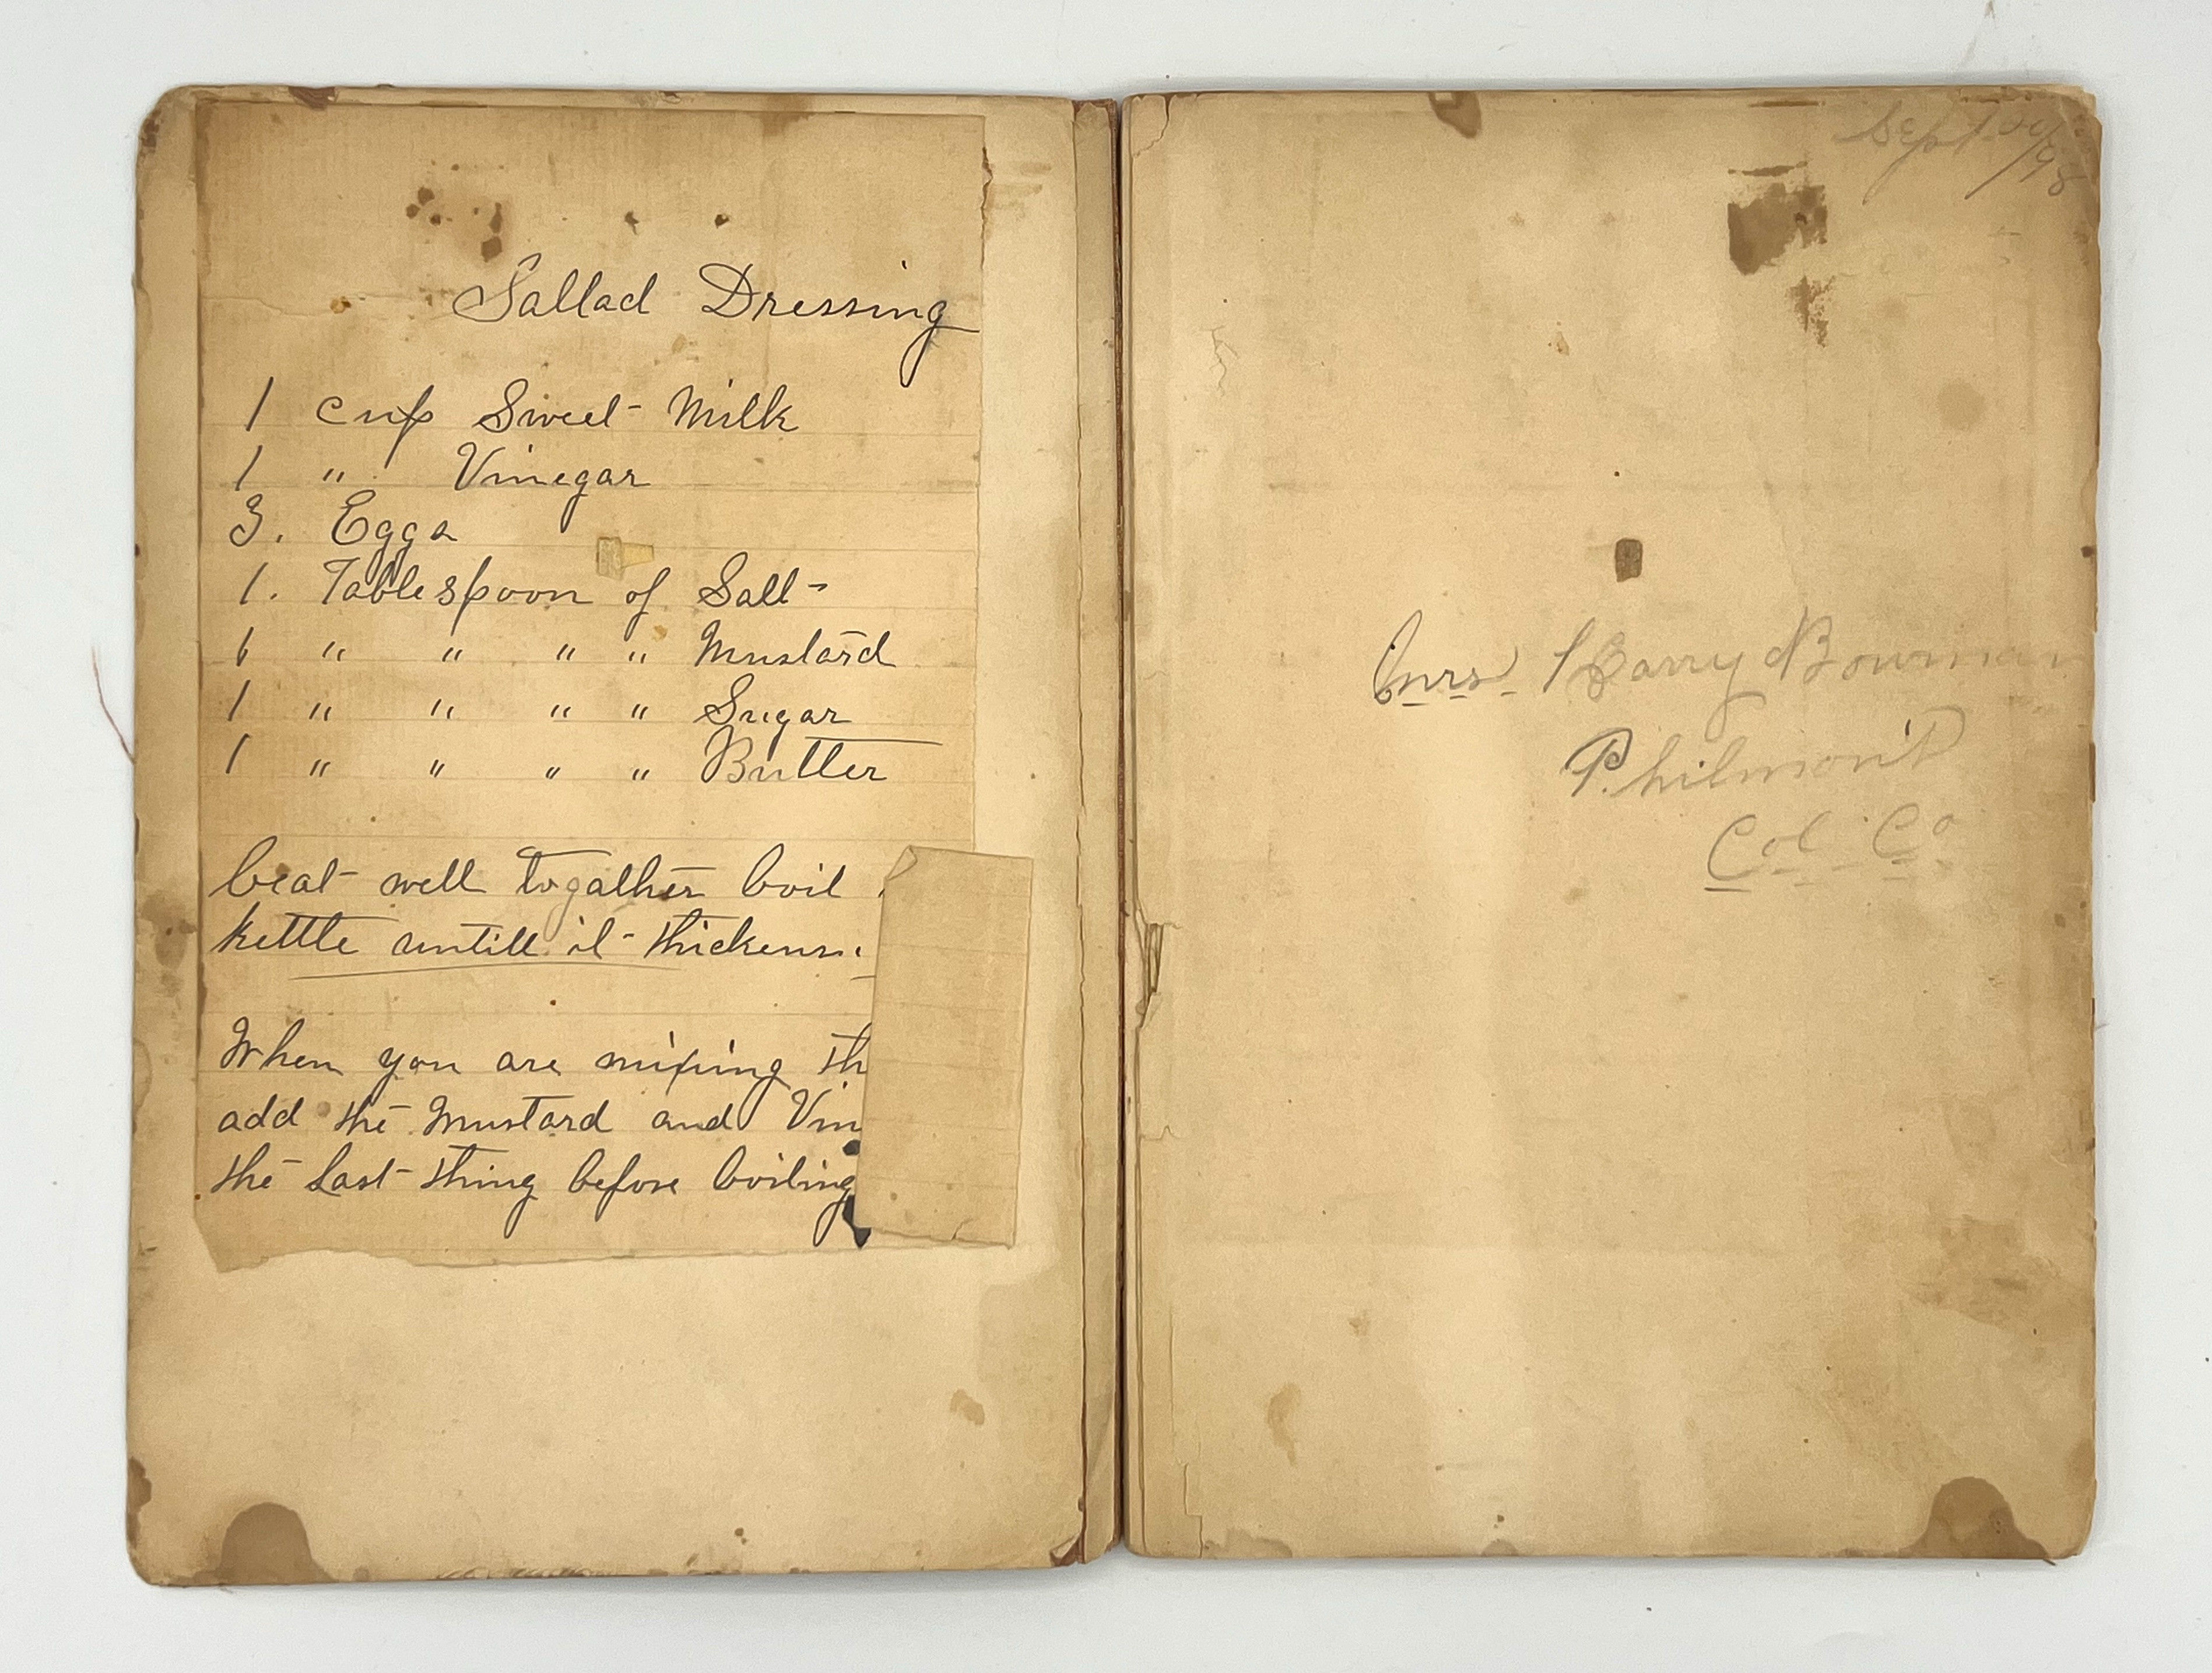 Sallad Dressing
1 cup Sweet Milk
1 " Vinegar
3. Eggs
1. Tablespoon of Salt
1 " " " " Mustard
1 " " " " Sugar
1 " " " " Butter
beat well togather boil
kettle untill it thickens.
When you are mixing th
add the Mustard and Vin
the last thing before boiling
Sept /98
Mrs. Harry Bowman
Philmont
Col. Co.